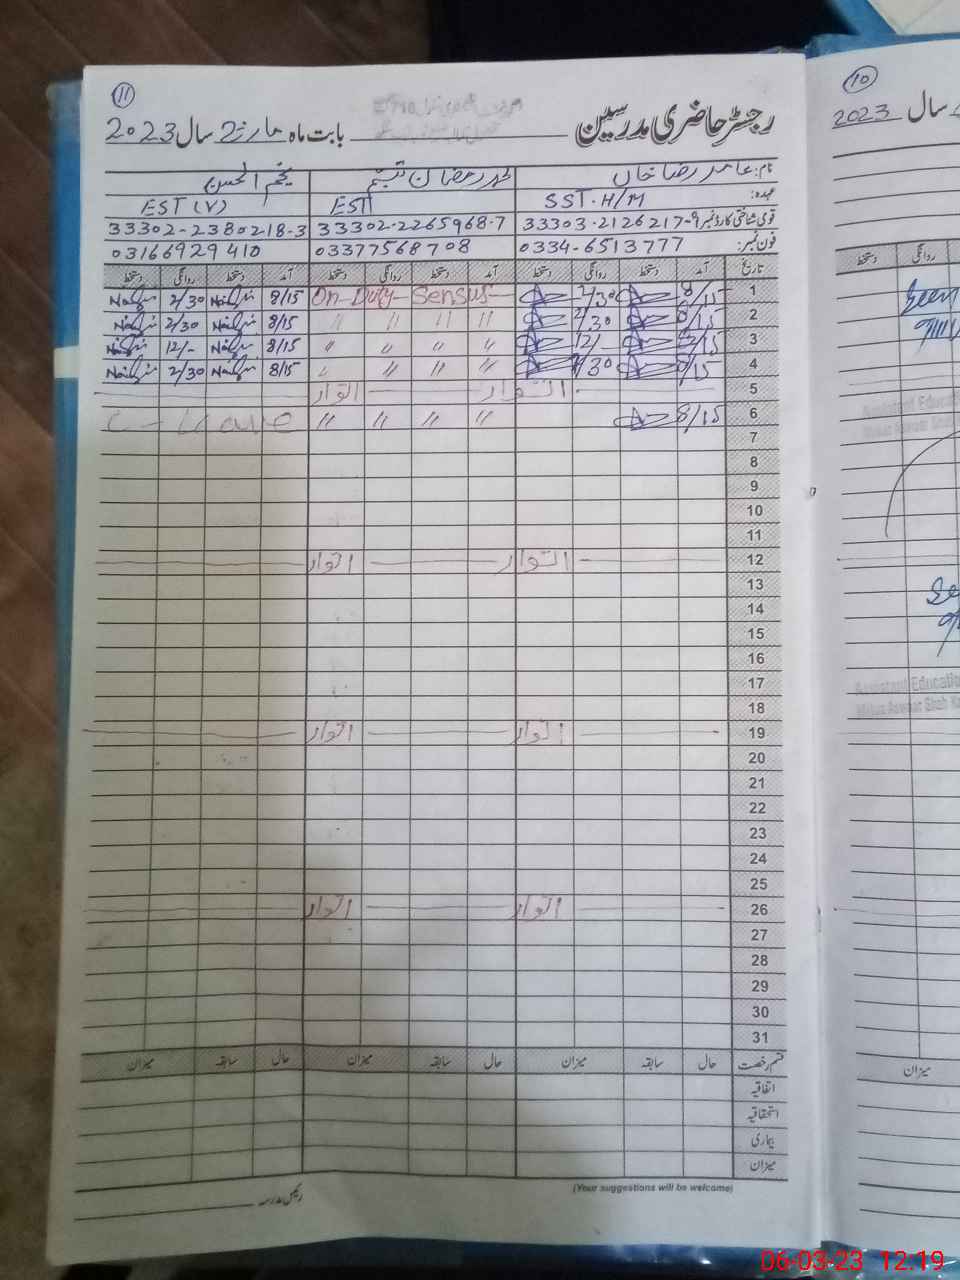 11
رجسٹر حاضری مدرسین بابت ماہ مارچ سال 2023
نام: عامر رضا خاں محمد رمضان تبسم نجم الحسن
عہدہ: SST-H/M EST EST (V)
قومی شناختی کارڈ نمبر 33303-2126217-9 33302-2265968-7 33302-2380218-3
فون نمبر: 0334-6513777 03377568708 03166929410
تاریخ آمد دستخط روانگی دستخط آمد دستخط روانگی دستخط آمد دستخط روانگی دستخط
1 8/15 2/30 On-Duty-Sensus 8/15 2/30
2 8/15 2/30 〃 〃 〃 〃 8/15 2/30
3 8/15 12/- 〃 〃 〃 〃 8/15 12/-
4 8/15 2/30 〃 〃 〃 〃 8/15 2/30
5 اتوار اتوار
6 8/15 〃 〃 〃 〃 C-Leave
7
8
9
10
11
12 اتوار اتوار
13
14
15
16
17
18
19 اتوار اتوار
20
21
22
23
24
25
26 اتوار اتوار
27
28
29
30
31
قسم رخصت حال سابقہ میزان حال سابقہ میزان حال سابقہ میزان
اتفاقیہ
استحقاقیہ
بیماری
میزان
(Your suggestions will be welcome)
رئیس مدرسہ
10
سال 2023
روانگی دستخط
Seen
Assistant Education
Assistant Education
میزان
06-03-23 12.19